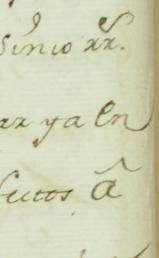 Sinco rr.
ar ya en
fectos â